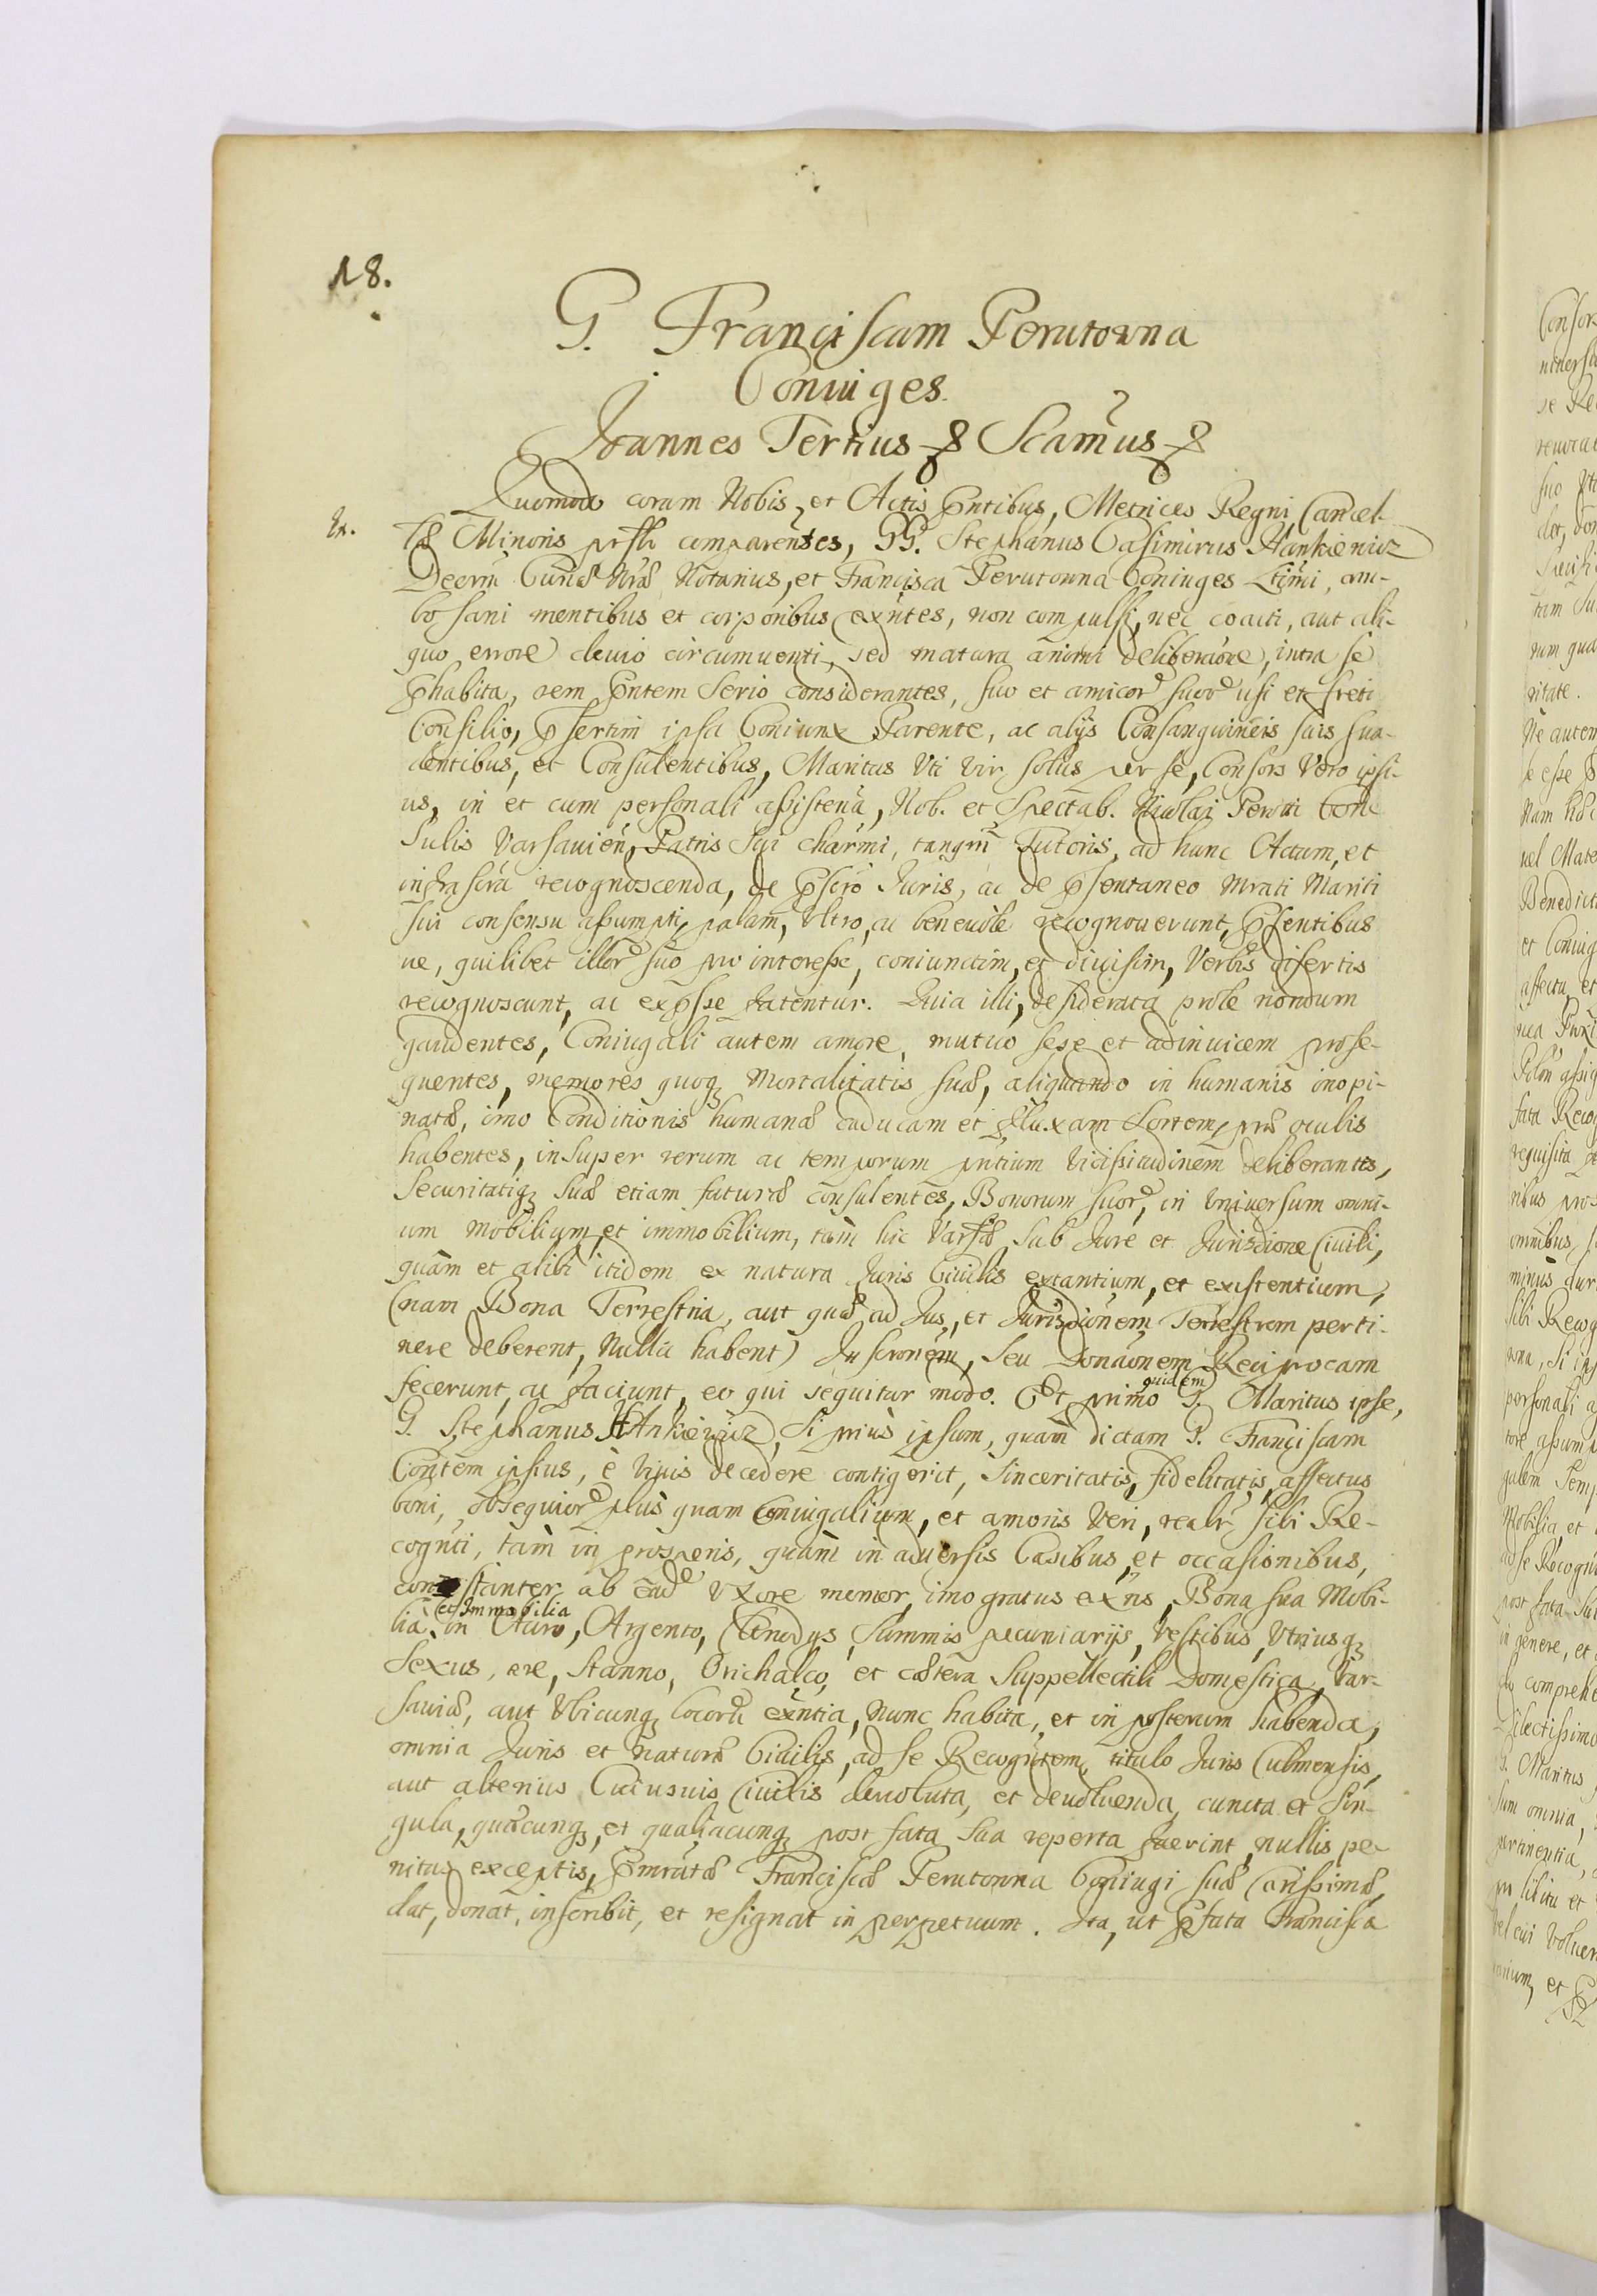 18.
G. Franciscam Perutowna
Coniuges.
Joannes Tertius & Scam̃us &
Quomodo coram Nobis, et Actis p̃ntibus, Metrices Regni Cancel-
Ex.
læ Minoris prsłr comparentes, GG. Stephanus Casimirus Hankiewicz
Decrũ Curiæ Nræ Notarius, et Francisca Perutowna Coniuges Ltĩmi, am-
bo sani mentibus et corporibus exñtes, non compulsi, nec coacti, aut ali-
quo errore deuio circumuenti, sed matura animi deliberãoe, intra se
p̃habita, rem p̃ntem Serio considerantes, suo et amicor̃ suor̃ usi et freti
Consilio, p̃sertim ipsa Coniunx Parente, ac alijs Consanguineis suis sua-
dentibus, et Consulentibus, Maritus Uti Vir solus per se, Consors Vero ipsi-
us, in et cum personali assistentia, Nob. et Spectab. Nicolai Peruti Con-
sulis Varsauien, Patris Sui charmi, tanqm̃ Tutoris, ad hunc Actum, et
infrascra recognoscenda, de p̃scro Juris, ac de p̃sentaneo mrati Mariti
sui consensu assumpti, palam, Ultro, ac beneuole recognouerunt, p̃sentibus
ue, quilibet illor̃ suo pro interesse, coniunctim, et diuisim, Verbis disertis
recognoscunt, ac exp̃sse fatentur. Quia illi, desiderata prole nondum
gaudentes, Coniugali autem amore, mutuo sese et adinuicem prose-
quentes, memores quoq; Mortalitatis suæ, aliquando in humanis inopi-
natæ, imo Conditionis humanæ caducam et fluxam Sortem, præ oculis
habentes, insuper rerum ac temporum pntium Vicissitudinem deliberantes,
Securitatiq; suæ etiam futuræ consulentes, Bonorum suor̃, in Universum omni-
um mobilium et immobilium, tam hic Varsæ sub Jure et Jurisdione Ciuili,
quàm et alibi itidem ex natura Juris Ciuilis extantium, et existentium,
(nam Bona Terrestria, aut quæ ad Jus, et Jurisdionem Terrestrem perti-
nere deberent, Nulla habent) Inscronem, Seu Donaonem Reciprocam
fecerunt, ac faciunt, eo qui sequitur modo. Et primo quidem G. Maritus ipse,
G. Stephanus HAnkiewicz, Si prius ipsum, quam dictam G. Franciscam
Contem ipsius, è Viuis decedere contigerit, Sinceritatis, fidelitatis, affectus
boni, obsequior̃ plus quam Coniugalium, et amoris Veri, realr̃ sibi Re-
cognti, tam in prosperis, quàm in aduersis Casibus, et occasionibus,
constanter ab eade Uxore memor, imo gratus exns, Bona sua Mobi-
lia, et Immobilia in Auro, Argento, Clenodys, Summis pecuniarijs, Vestibus, Utriusq;
Sexus, ære, Stanno, Orichalco, et cætera Suppellectili Domestica, Var-
sauiæ, aut Ubicunq; locor̃ exñtia, Nunc habita, et in posterum habenda,
omnia Juris et naturæ Ciuilis, ad se Recogntem, titulo Juris Culmensis,
aut alterius Cuiusuis Ciuilis deuoluta, et deuoluenda, cuncta et Sin-
gula, quæcunq;, et qualiacunq; post fata sua reperta fuerint, nullis pe-
nitus exceptis, p̃mratæ Franciscæ Perutowna Coniugi suæ Carissimæ,
dat, donat, inscribit, et resignat in perpetuum. Ita, ut p̃fata Francisca